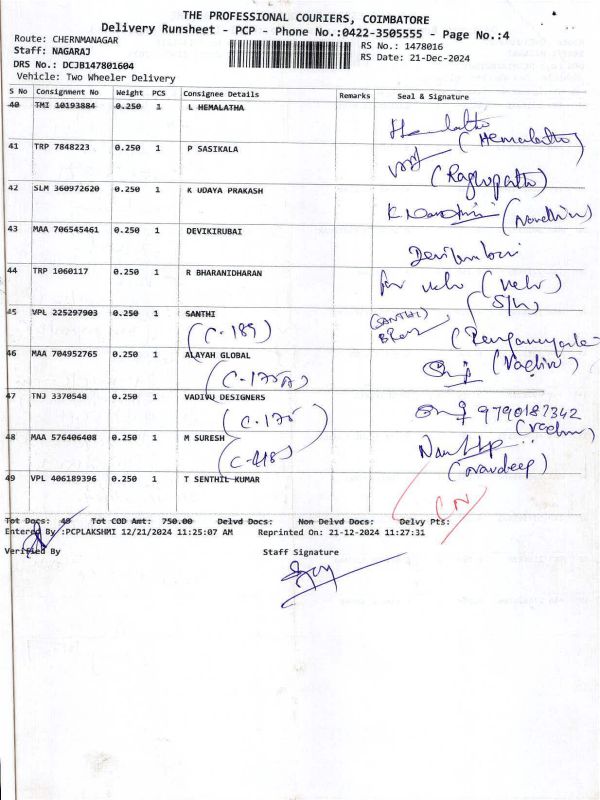 THE PROFESSIONAL COURIERS, COIMBATORE
Delivery Runsheet - PCP - Phone No.:0422-3505555 - Page No.:4
Route: CHERNMANAGAR
RS No.: 1478016
Staff: NAGARAJ
RS Date: 21-Dec-2024
DRS No.: DCJB147801604
Vehicle: Two Wheeler Delivery
S No Consignment No Weight PCS Consignee Details Remarks Seal & Signature
40 TMI 10193884 0.250 1 L HEMALATHA
Hemalatha (Hemalatha)
41 TRP 7848223 0.250 1 P SASIKALA
(Ragupathi)
42 SLM 360972620 0.250 1 K UDAYA PRAKASH
43 MAA 706545461 0.250 1 DEVIKIRUBAI
44 TRP 1060117 0.250 1 R BHARANIDHARAN
for
45 VPL 225297903 0.250 1 SANTHI
(SANTHI)
(C-189)
46 MAA 704952765 0.250 1 ALAYAH GLOBAL
47 TNJ 3370548 0.250 1 VADIVU DESIGNERS
9790187342
(C-175)
48 MAA 576406408 0.250 1 M SURESH
(Navdeep)
(C-418)
49 VPL 406189396 0.250 1 T SENTHIL KUMAR
CN
Tot Docs: 49 Tot COD Amt: 750.00 Delvd Docs: Non Delvd Docs: Delvy Pts:
Entered By :PCPLAKSHMI 12/21/2024 11:25:07 AM Reprinted On: 21-12-2024 11:27:31
Verified By Staff Signature